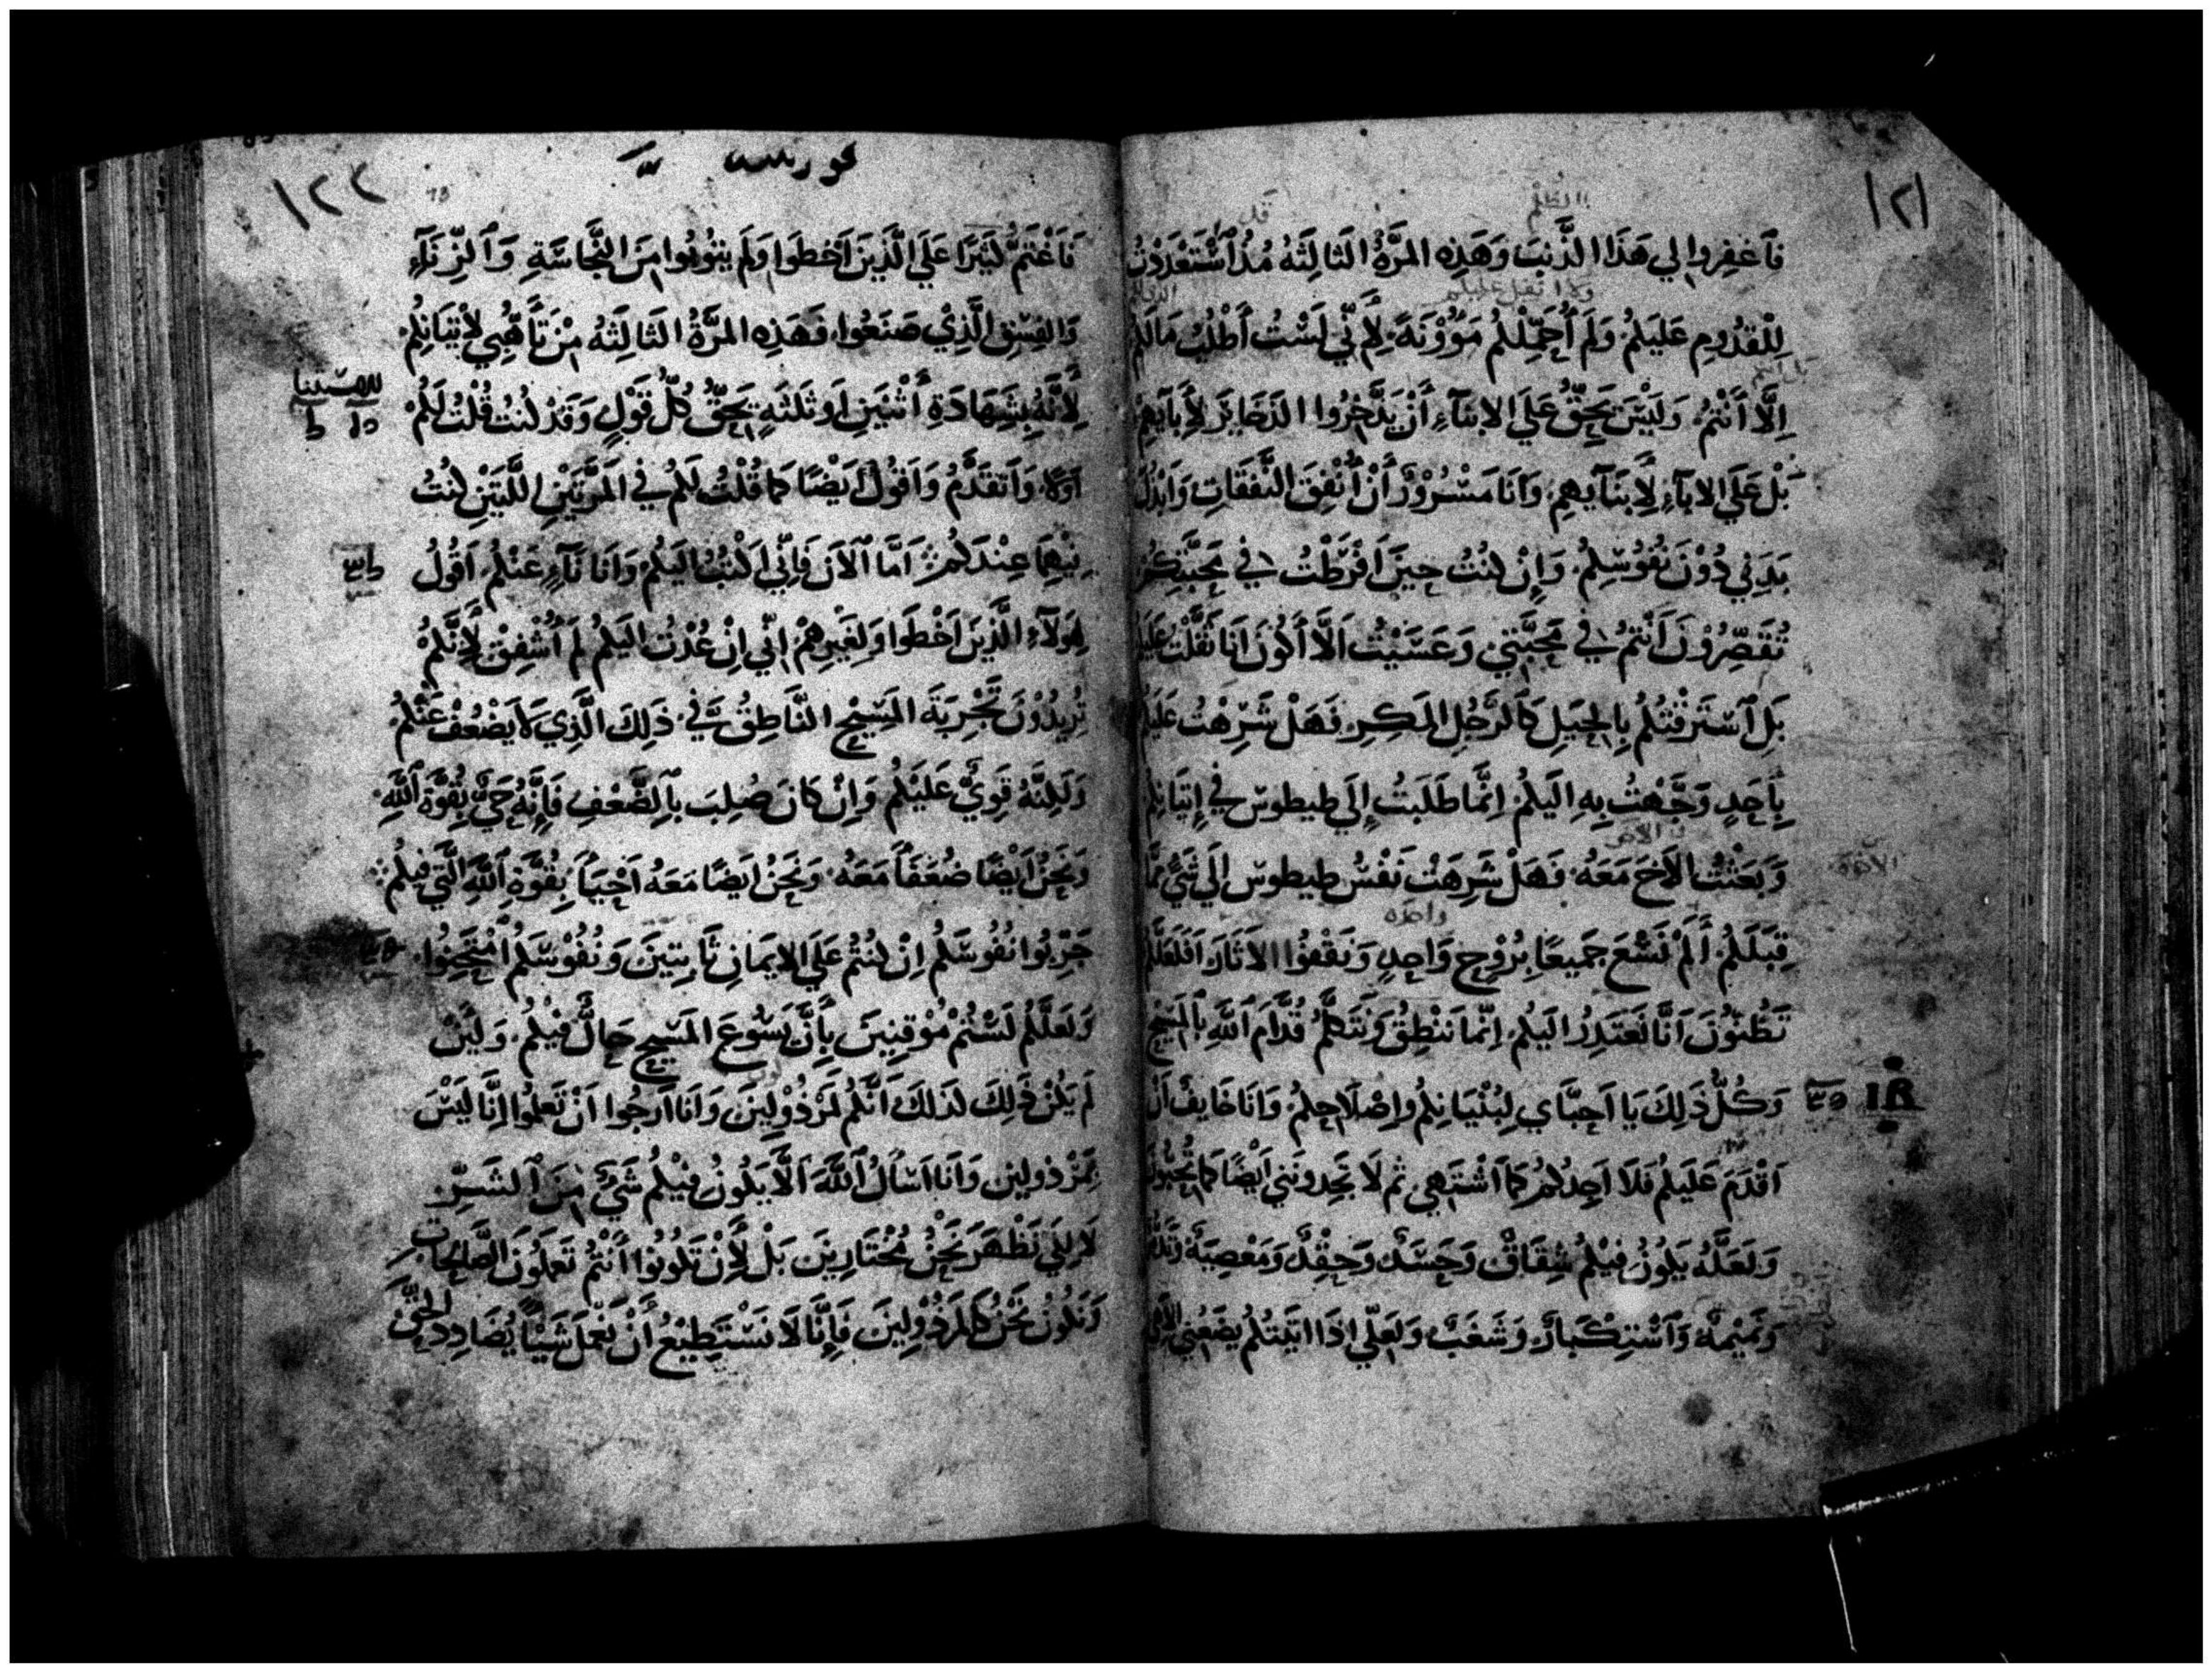 ١٢١
الظلم
قل
فَاَغفِروا لي هَذَا الذَّنبَ وَهَذِهِ المَرَّةُ الثالِثَهُ مُذُ اَسْتَعْدَدْتُ
ولا اثقل عليكم
لِلْقدُومِ عَلَيكمُ وَلَم أُحَمِّلْكمُ مَوُوْنَةً لِأَنّي لَسْتُ أَطْلُبُ مَالَكم
اِلَّا أَنْتمُ وَلَيْسَ يَحِقُّ عَلَي الابنَآءِ أَنْ يَدَّخِروُا الذَخَايَرَ لِأَبآيَهِم
بَلْ عَلَي الابآءِ لِأَبنَآيهِم وَانَا مَسْرُوْرٌ أَنْ أُنْفِقَ النَّفَقَاتِ وَابْذُلَ
بَدَنِي دُوْنَ نُفوُسِكمُ وَاِنْ كنْتُ حِيَن اَفْرَطْتُ في مَحَبَّتِكمُ
تُقَصِّرُوْنَ اَنْتمُ في مَحَبَّتي وَعَسَيْتُ اَلَّا أَكوُنَ اَنَا ثَقَّلْتُ عَلَيكم
بَلِ اَسْتَرَقْتُكمُ بِالحِيَلِ كَالرَّجُلِ المَكِرِ فَهَلْ شَرِهْتُ عَلَيكم
بِأَحَدٍ وَجَّهْتُ بِهِ اليَكمُ اِنَّما طَلَبَتُ إِلَي طيطوس في اِتيَانِكمُ
وَبَعَثْتُ الاَخَ مَعَهُ فَهَلْ شَرِهَتْ نَفْسُ طيطوس الَي شَيٍّ مِمَّا
الاخوة
واحده
قِبَلَكمُ أَلَمْ نَسْعَ جَميعًا بِرُوْحٍ وَاحِدٍ وَنَقفُوا الاَثَارَ اَفَلَعَلَّكم
تَظُنوُّنَ اَنَّا نَعَتذِرُ اليَكمُ اِنَّما نَنْطِقُ وَنَتَكلَّمُ قُدَّامَ اَللَّهِ بِالمَسيحِ
وَكُلُّ ذَلِكَ يَا اَحِبَّاي لِبُنْيَانِكمُ وَاِصْلَاحِكمُ وَانَا خَايفٌ أَنْ
اَقْدَمَ عَلَيكمُ فَلَا اَجِدُكمُ كمَا اَشْتَهِي ثم لَا تَجِدونَني اَيْضًا كمَا تُحِبُّونَ
وَلَعَلَّهُ يَكوُنُ فيْكمُ شِقَاقٌ وَحَسَدٌ وَحِقْدٌ وَمَعْصِيَهٌ
وَنَميْمهٌ وَاَسْتِكْبَارٌ وَشَغَبٌ وَلَعَلّي اذَا اتَيتكمُ يضَعُني
١٢٢
فَاَغْتَمُّ كَثيَرًا عَلَي الَّذَيِنَ اَخطَوا وَلَم يتوُبوُا مِنَ النَّجَاسَةِ وَاَلزِّنَآءِ
وَالفِسْقِ الَّذِيْ صَنَعُوا وَهَذِهِ المَرَّةُ الثَالِثَهُ مِنْ تَأَهُّبي لاِتيَانِكمُ
لِأَنَّهُ بِشَهَادَةِ أَثنَيْنِ اَو ثَلثَهٍ يَحِقُّ كُلُّ قَوْلٍ وَقدْ كنْتُ قُلْتُ لَكمُ
اَوَّلا وَاَتقدَّمُ وَاَقوُلُ اَيْضًا كمَا قُلْتُ لَكمُ في المَرَّتَيْنِ اللَّتَيْنِ كنْتُ
فِيْهِمَا عِنْدَكمُ اَمَّا اَلاَنَ فَاِنّي اكْتُبُ اليَكمُ وَاَنَا نَآءٍ عَنْكمُ اَقُولُ
لِهَولآءِ الَّذِيْنَ اَخْطَوا وَلِغَيْرِهِمْ اِنّي اِنْ عُدْتُ اليَكمُ لَم أُشْفِقْ لِأَنَّكمُ
تُرِيدُوْنَ تَجْرِبَةَ المَسيْحِ النَّاطِقِ فيَّ ذَلِكَ الَّذِي لاَ يَضْعُفْ عَنْكمُ
وَلَكِنَّهُ قَوِيٌّ عَلَيْكمُ وَاِنْ كَانَ صُلِبَ بِالضَّعْفِ فَاِنَّهُ حَيٌّ بِقُوَّةِ اَللَّهِ
وَنَحْنُ اَيْضًا ضُعَفَاُ مَعَهُ وَنَحْنُ ايَضًا مَعَهُ اَحْيَاُ بِقُوَّةِ اَللَّهِ الَّتي فيكمُ
جَرِّبُوا نُفُوسَكمُ اِنْ كنْتُم عَلَي الايَمانِ ثَابِتِيَن وَنُفُوْسَكمُ اَمْتَحِنُوا
وَلَعَلَّكمُ لَسْتُمْ مُوْقِنِيَن بِأَنَّ يَسُوعَ المَسيحِ حَالٌّ فيْكمُ وَلَئِنْ
لَم يَكُنْ ذَلِكَ كذَلكَ اَنَّكمُ لمَرْذُوْلِينَ وَانَا اَرجُوا اَنْ تَعلموُا اِنَّا لَيْسَ
بِمَرْذولين وَانَا اسَالُ اَللَّهَ اَلَّا يَكوُنُ فيْكمُ شَيٌّ مِنَ اَلشَّرِّ
لَا لِكَي نَظْهَرَ نَحْنُ مُخْتَارِينَ بَلْ لِأَنْ تَكوُنُوا اَنْتُم تَعَملوُنَ الصَّالحِاتِ
وَنَكوُنُ نَحْنُ كَالمرَذُوْلِينَ فَاِنَّا لَا نَسْتَطِيْعُ أَنْ نَعْمَلَ شَيْئًا يُضَادِدُ الحَقَّ